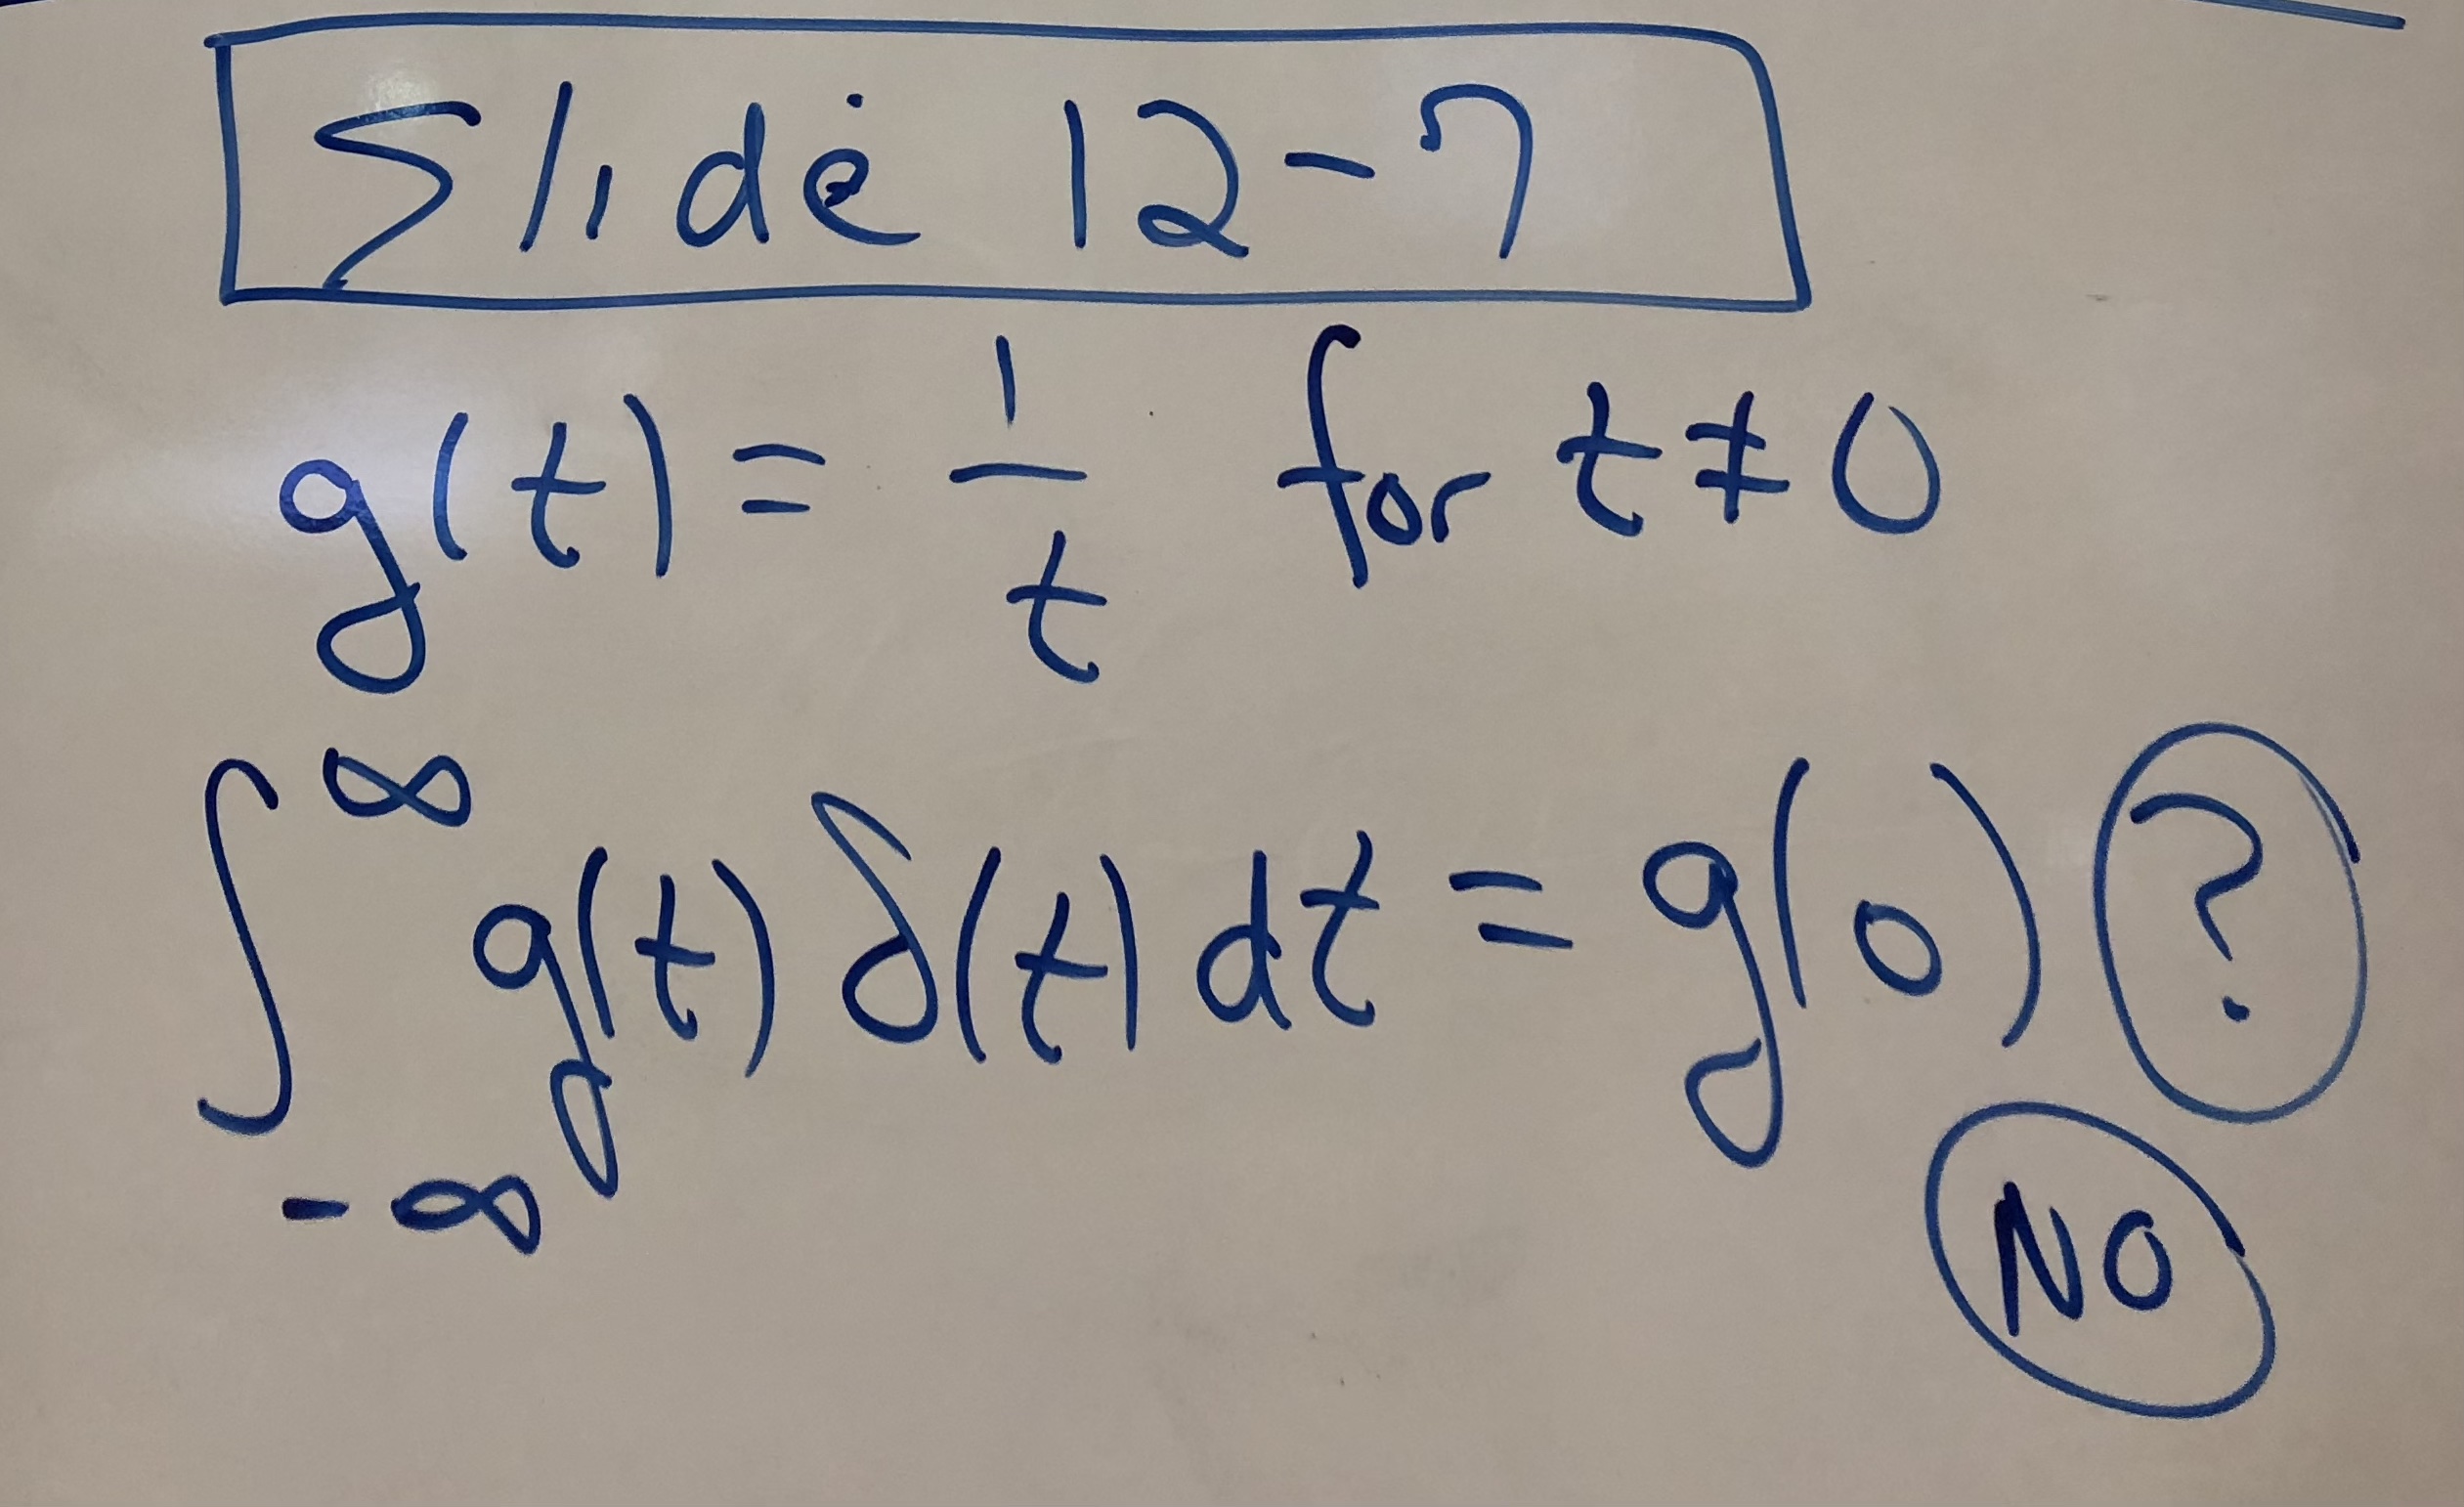 Slide 12-7
g(t) = 1/t for t ≠ 0
∫_{-∞}^{∞} g(t) δ(t) dt = g(0) ?
NO